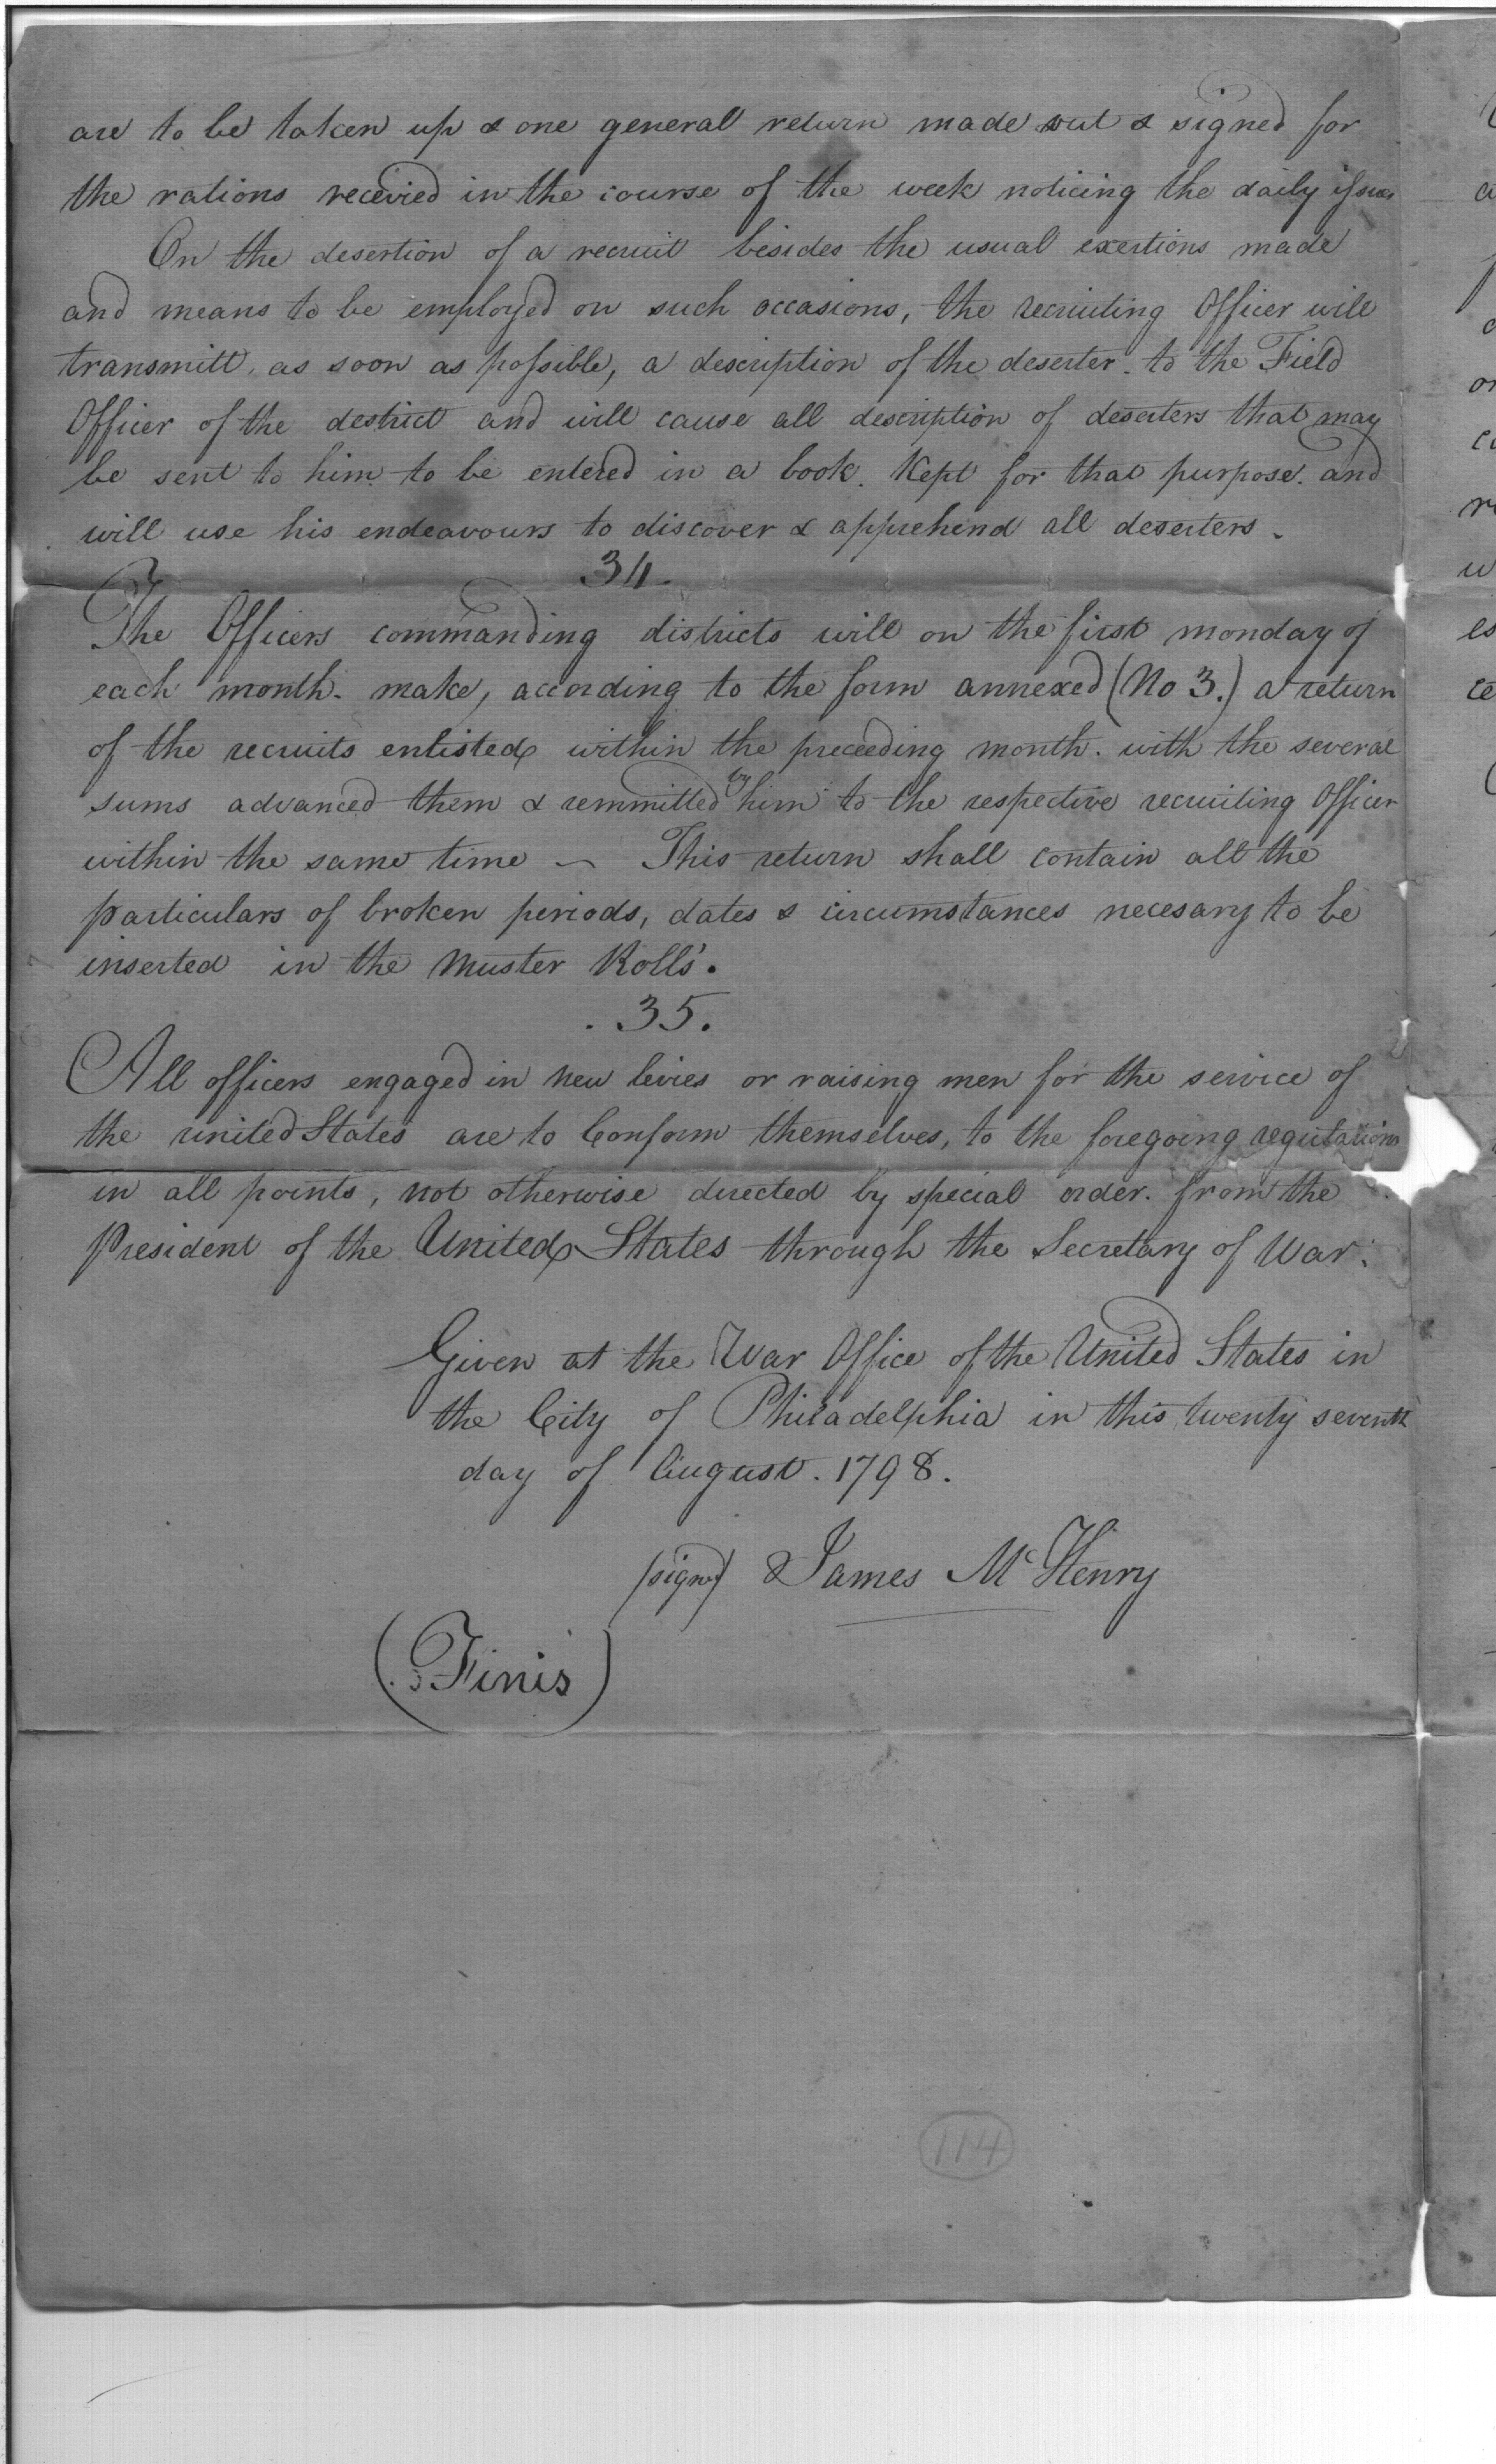 are to be taken up & one general return made out & signed for
the rations received in the course of the week noticing the daily issues
On the desertion of a recruit besides the usual exertions made
and means to be employed on such occasions, the recruiting Officer will
transmitt, as soon as possible, a description of the deserter. to the Field
Officer of the destrict and will cause all description of deserters that may
be sent to him to be entered in a book. Kept for that purpose. and
will use his endeavours to discover & apprehend all deserters.
34.
The Officers commanding districts will on the first monday of
each month. make, according to the form annexed (No 3.) a return
of the recruits enlisted within the preceeding month. with the several
sums advanced them & remmitted by him to the respective recruiting Officer
within the same time — This return shall contain all the
particulars of broken periods, dates & circumstances necesary to be
inserted in the Muster Rolls.
. 35.
All officers engaged in new levies or raising men for the service of
the united States are to Conform themselves, to the foregoing regulations
in all points, not otherwise directed by special order. from the
President of the United States through the Secretary of War.
Given at the War Office of the United States in
the City of Philadelphia in this twenty seventh
day of August. 1798.
(signed) James McHenry
(Finis)
114